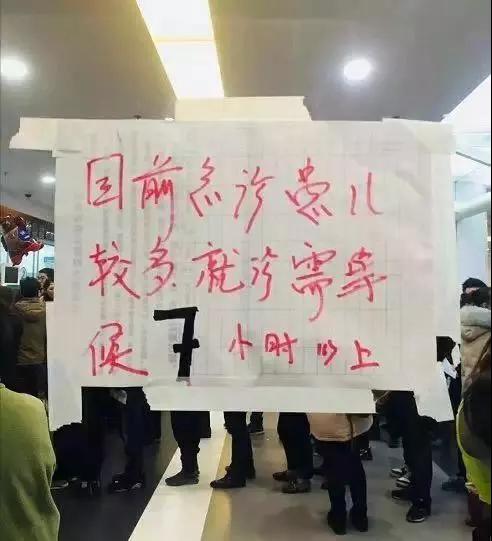 目前急诊患儿
较多就诊需等
候7小时以上